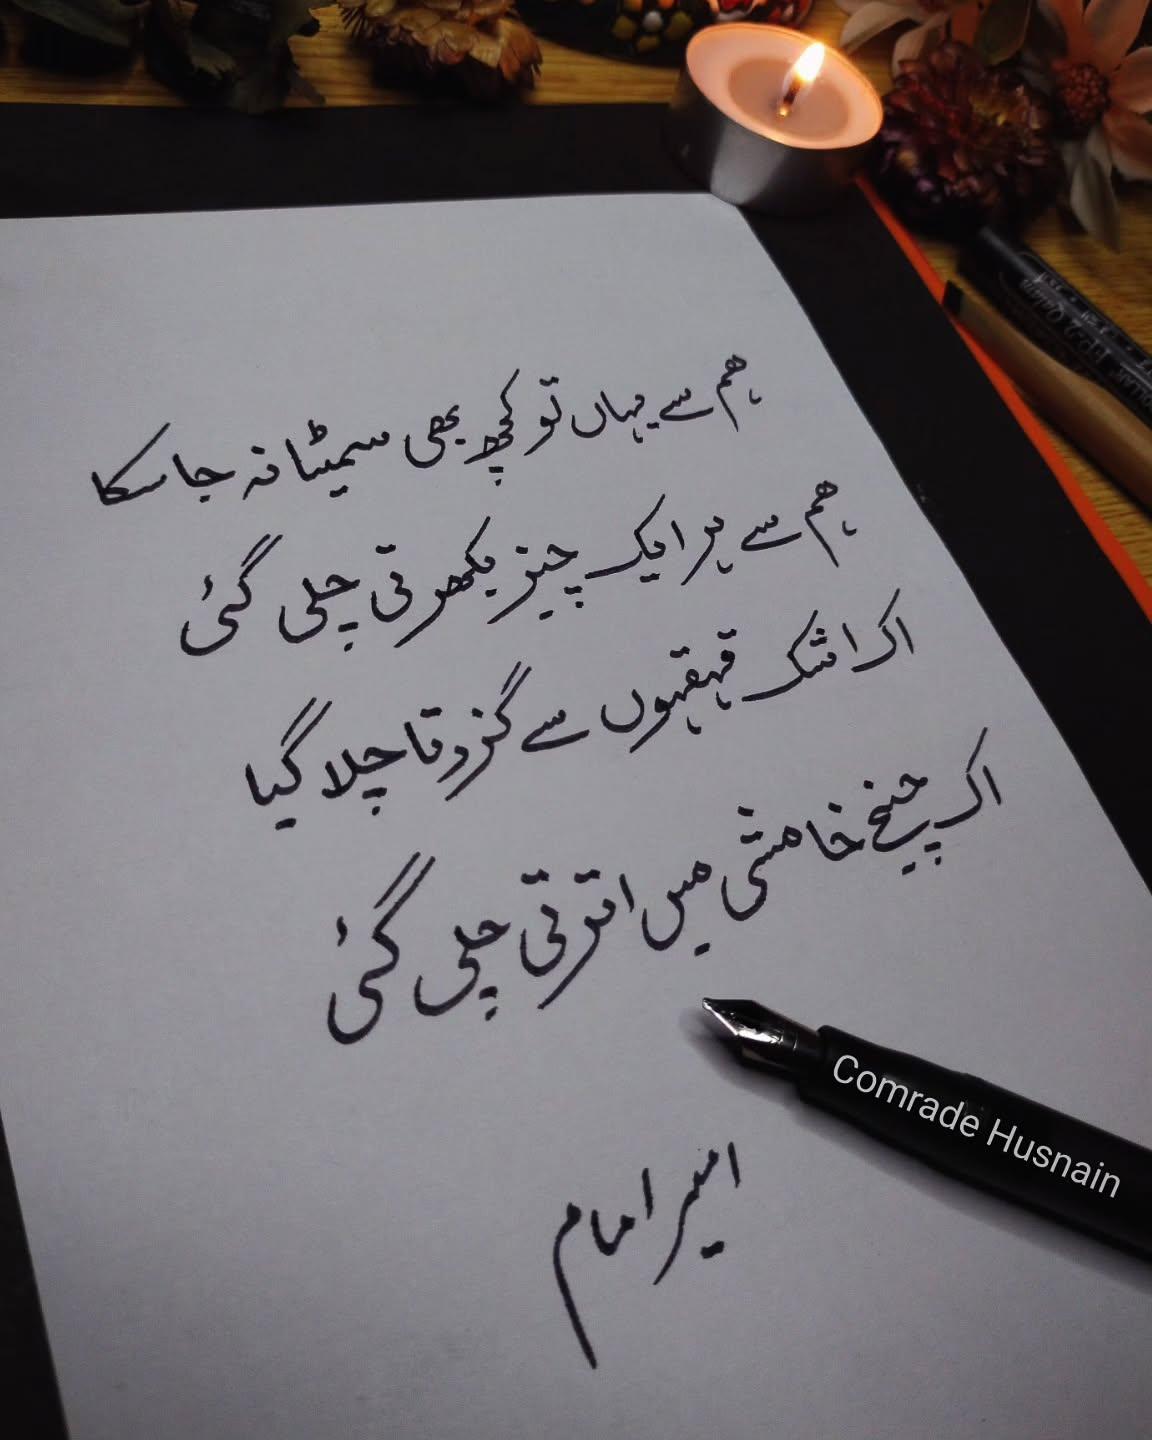 ہم سے یہاں تو کچھ بھی سمیٹا نہ جا سکا
ہم سے ہر ایک چیز بکھرتی چلی گئی
اک اشک قہقہوں سے گزرتا چلا گیا
اک چیخ خامشی میں اترتی چلی گئی
امیر امام
Comrade Husnain